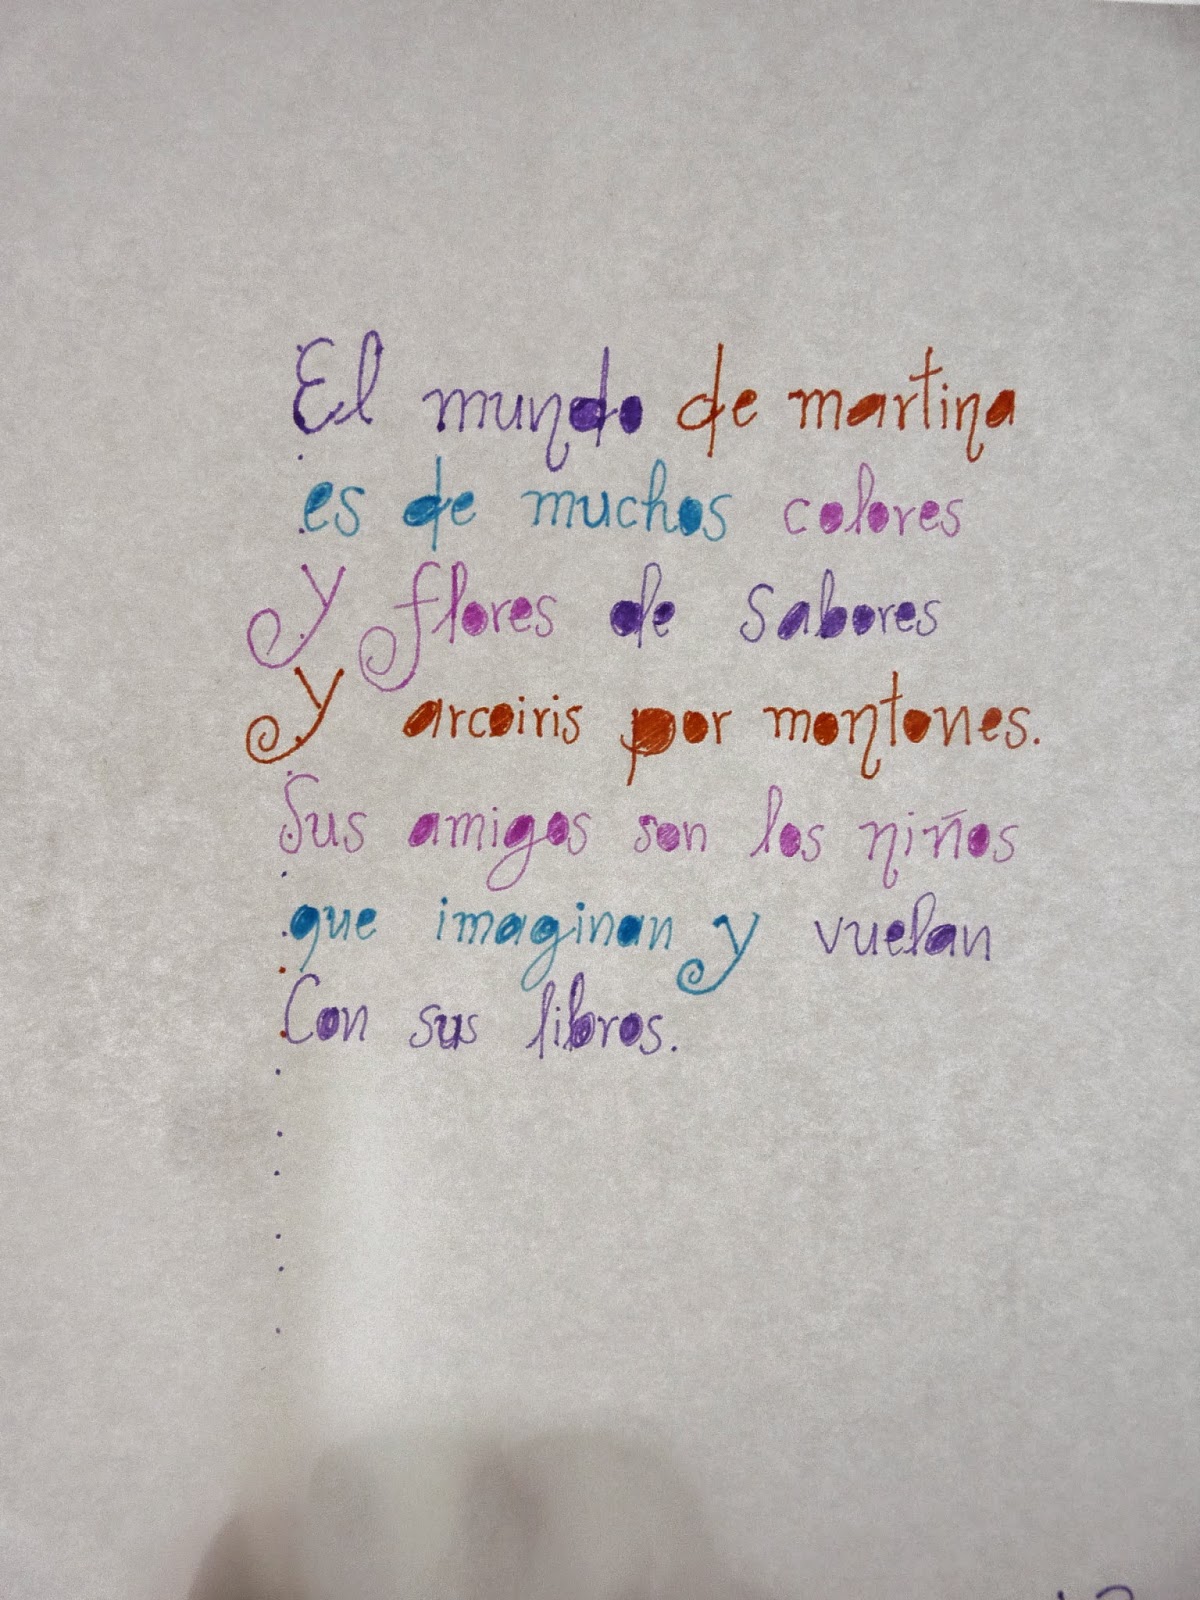 El mundo de martina
es de muchos colores
y flores de sabores
y arcoiris por montones.
Sus amigos son los niños
que imaginan y vuelan
Con sus libros.